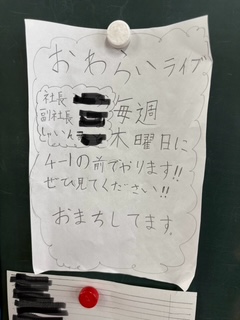 おわらいライブ
社長
副社長
しゃいん
毎週
木曜日に
4-1の前でやります!!
ぜひ見てください!!
おまちしてます。